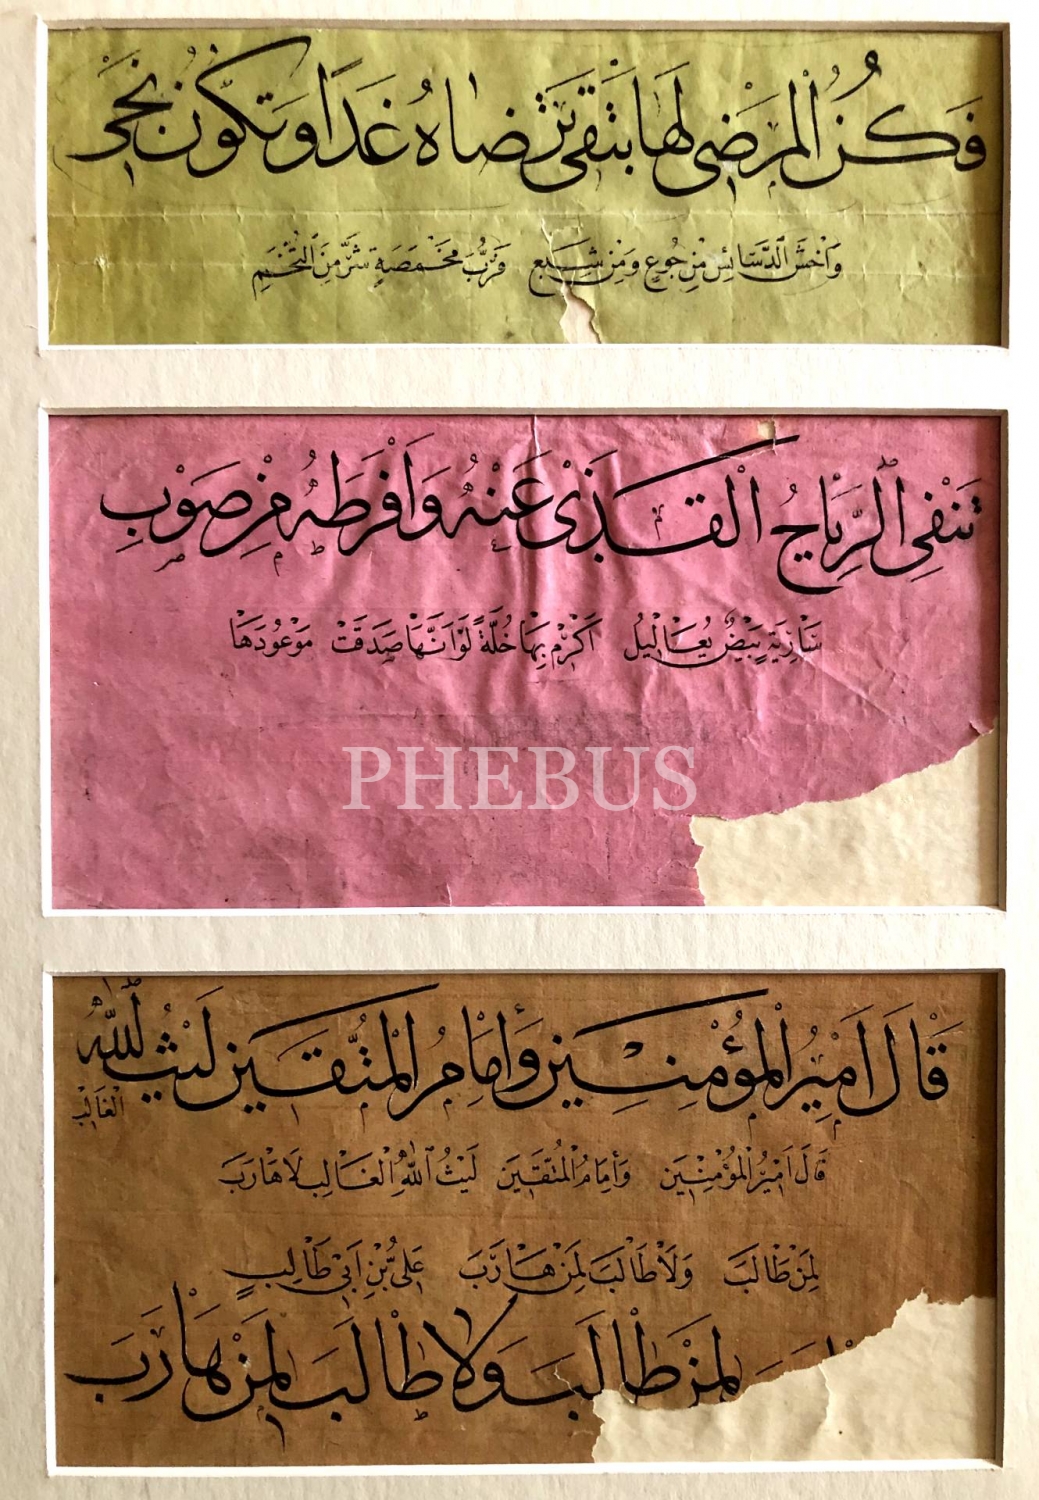 فَكُنِ الْمَرْضِي لَهَا بِتُقًى تَرْضَاهُ غَدًا وَتَكُونُ نَجِي
وَاخْشَ الدَّسَائِسَ مِنْ جُوعٍ وَمِنْ شِبَعٍ فَرُبَّ مَخْمَصَةٍ شَرٌّ مِنَ التُّخَمِ
تَنْفِي الرِّيَاحُ الْقَذَى عَنْهُ وَأَفْرَطَهُ مِنْ صَوْبِ
سَارِيَةٍ بِيضٌ يَعَالِيلُ أَكْرِمْ بِهَا خُلَّةً لَوْ أَنَّهَا صَدَقَتْ مَوْعُودَهَا
PHEBUS
قَالَ أَمِيرُ الْمُؤْمِنِينَ وَإِمَامُ الْمُتَّقِينَ لَيْثُ اللّٰهِ الْغَالِبِ
قَالَ أَمِيرُ الْمُؤْمِنِينَ وَإِمَامُ الْمُتَّقِينَ لَيْثُ اللّٰهِ الْغَالِبِ لَا هَارَبَ
لِمَنْ طَالَبَ وَلَا طَالَبَ لِمَنْ هَارَبَ عَلِيُّ بْنُ أَبِي طَالِبٍ
لِمَنْ طَالَبَ وَلَا طَالَبَ لِمَنْ هَارَبَ